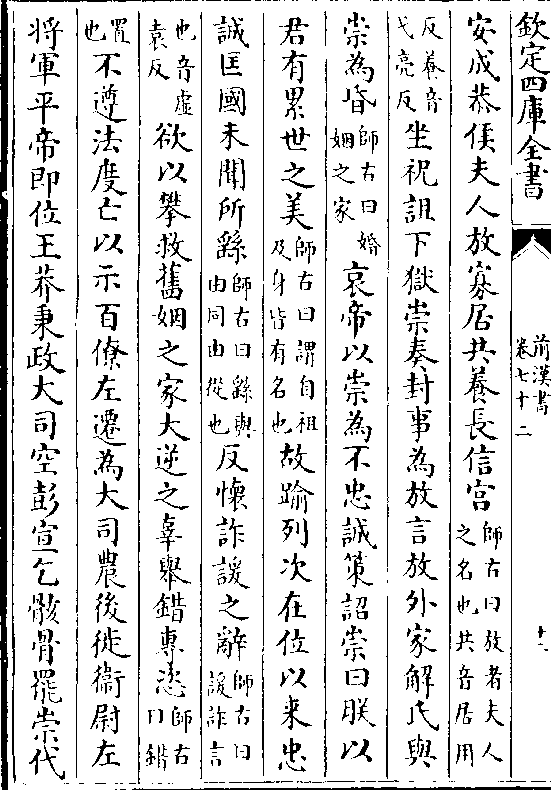 欽定四庫全書
前漢書
卷七十二
十二
安成恭侯夫人放寡居共養長信宮師古曰放者夫人之名也共音居用
反養音弋亮反坐祝詛下獄崇奏封事為放言放外家解氏與
崇為昏師古曰婚姻之家哀帝以崇為不忠誠策詔崇曰朕以
君有累世之美師古曰謂自祖及身皆有名也故踰列次在位以来忠
誠匡國未聞所繇師古曰繇與由同由從也反懷詐諼之辭師古曰諼詐言
也音虚袁反欲以攀救舊姻之家大逆之辜舉錯專恣師古曰錯
置也不遵法度亡以示百僚左遷為大司農後徙衛尉左
将軍平帝即位王莽秉政大司空彭宣乞骸骨罷崇代